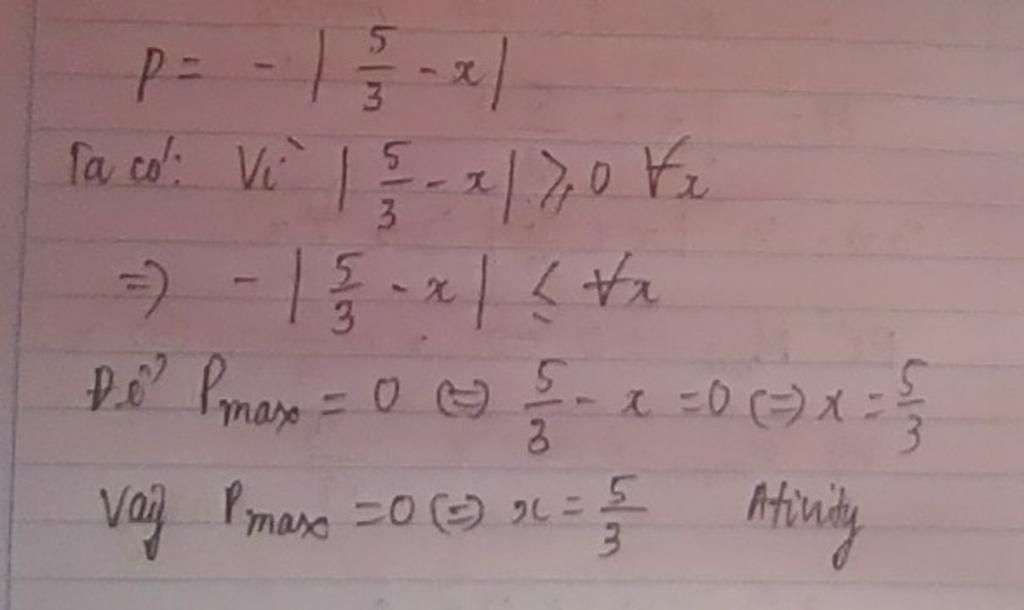 P = - | 5/3 - x |
Ta có: Vì | 5/3 - x | ≥ 0 ∀x
=> - | 5/3 - x | ≤ ∀x
Để Pmax = 0 <=> 5/3 - x = 0 <=> x = 5/3
Vậy Pmax = 0 <=> x = 5/3 Atinity